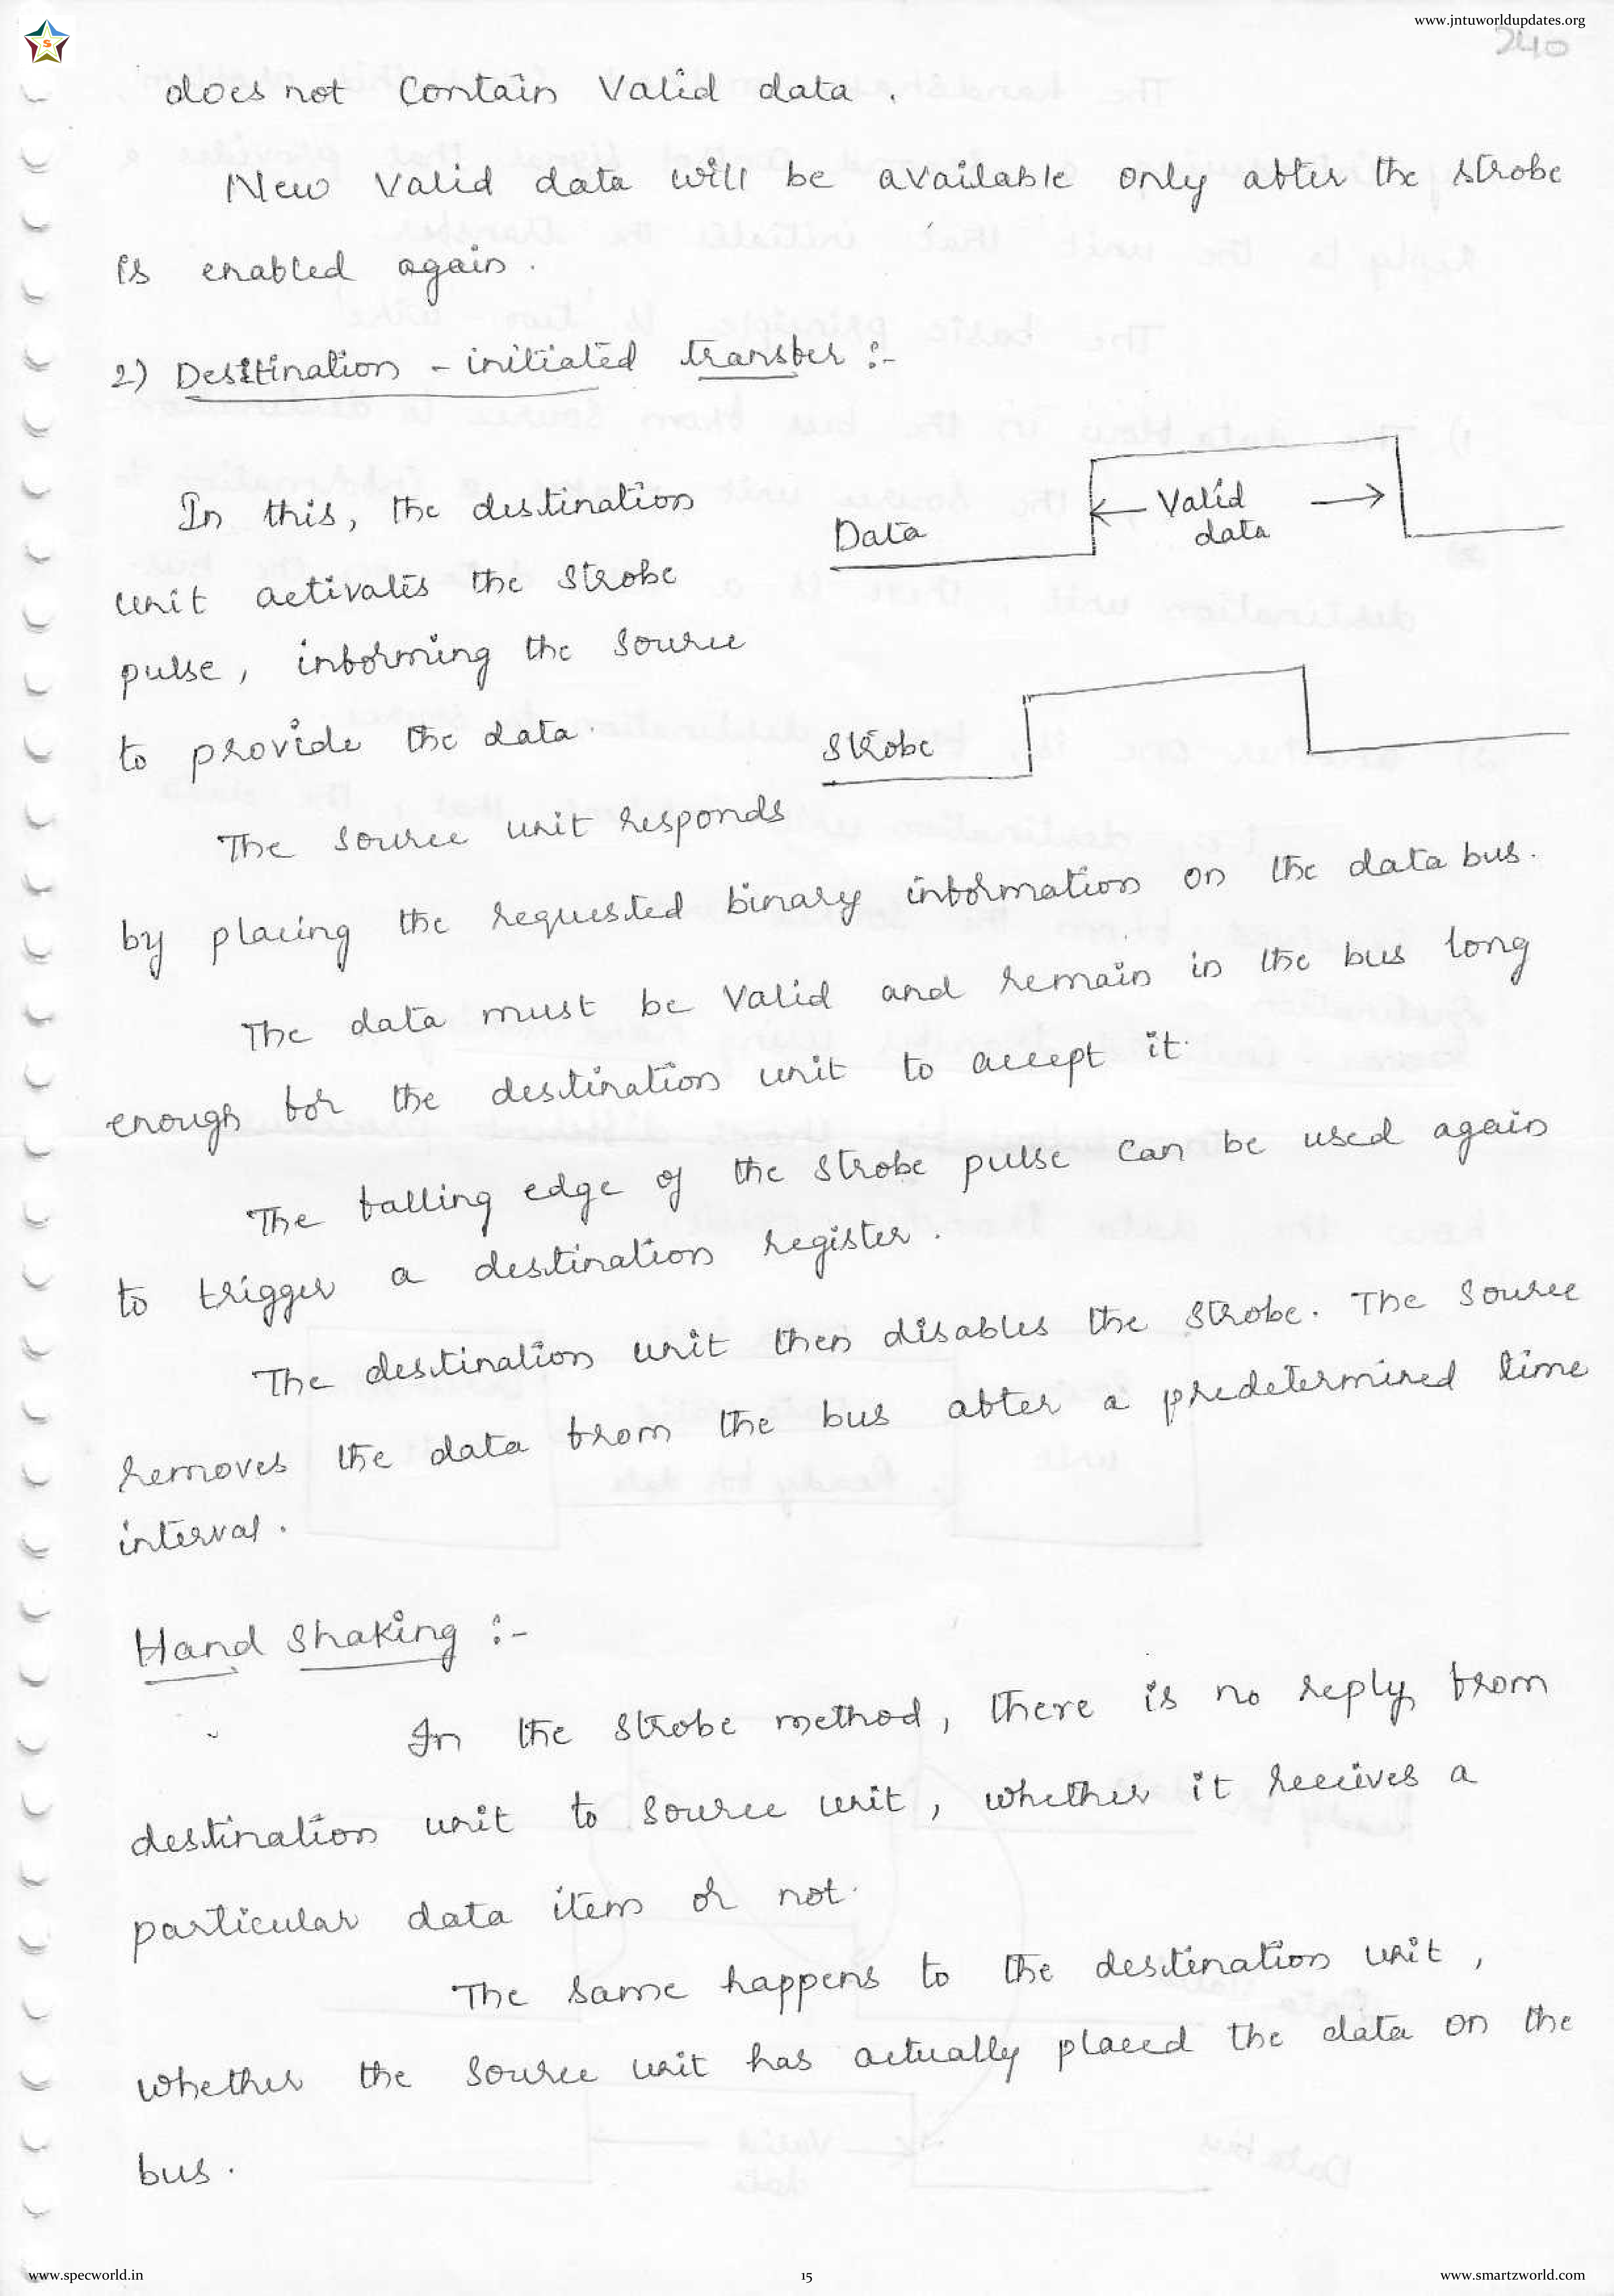 www.jntuworldupdates.org
S
240
does not contain valid data.
New valid data will be available only after the strobe
is enabled again.
2) Desttination - initiated transfer :-
In this, the destination
unit activates the strobe
pulse, informing the source
to provide the data.
Data
← Valid →
data
Strobe
The source unit responds
by placing the requested binary information on the data bus.
The data must be valid and remain in the bus long
enough for the destination unit to accept it.
The falling edge of the strobe pulse can be used again
to trigger a destination register.
The destination unit then disables the strobe. The source
removes the data from the bus after a predetermined time
interval.
Hand Shaking :-
In the strobe method, there is no reply from
destination unit to source unit, whether it receives a
particular data item or not.
The same happens to the destination unit,
whether the source unit has actually placed the data on the
bus.
www.specworld.in
15
www.smartzworld.com